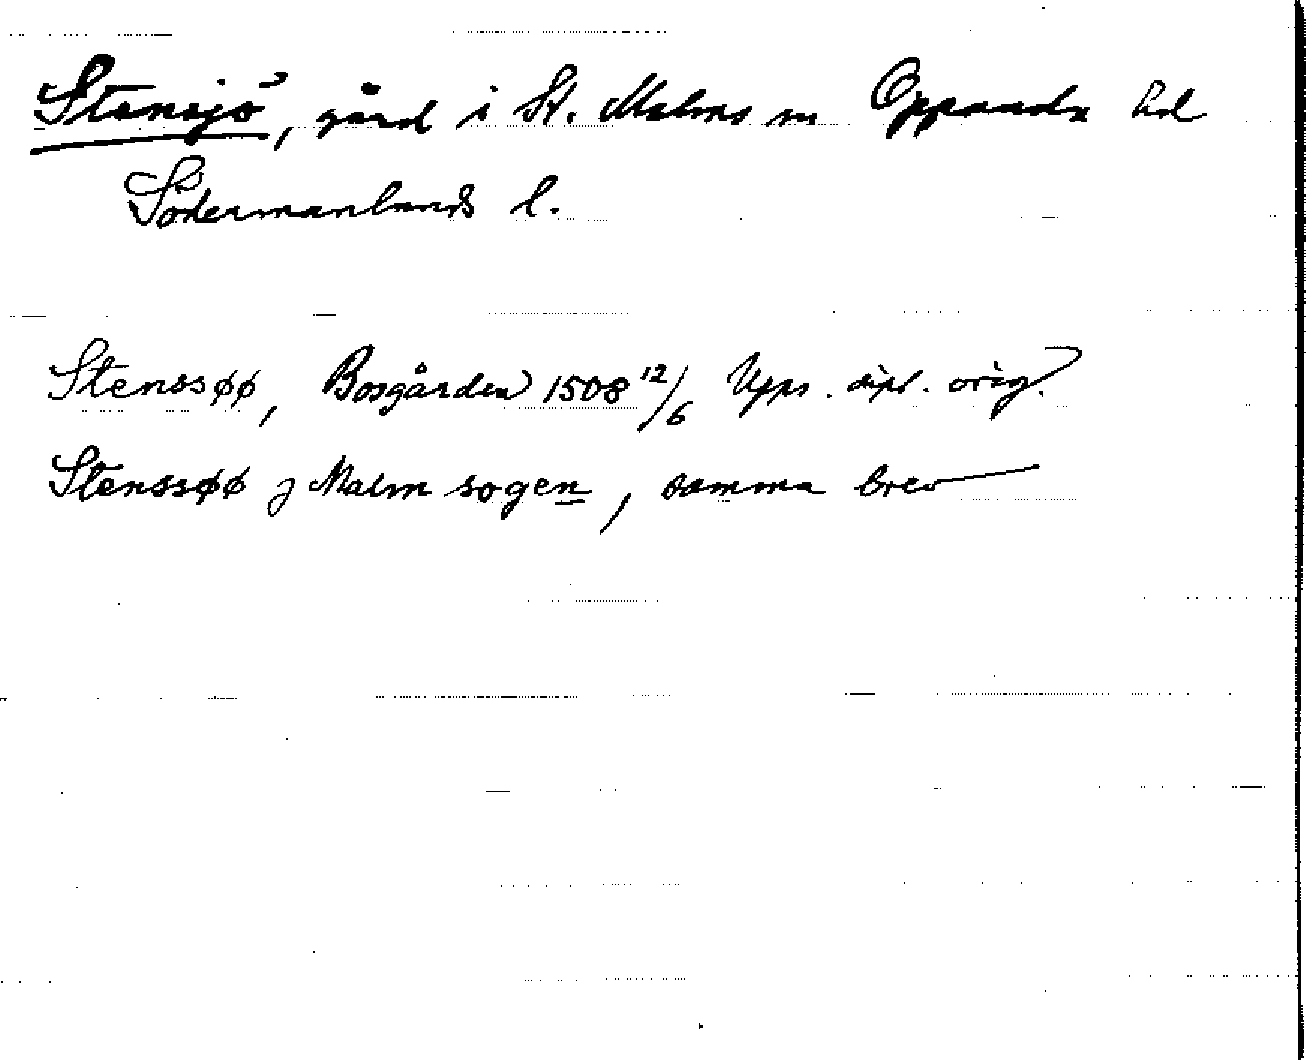 Stensjö, gård i St. Malms sn Oppunda hd
Södermanlands l.
Stenssøø, Bosgården 1508 12/6 Upps. dipl. orig.
Stenssøø j Malm sogen, samma brev